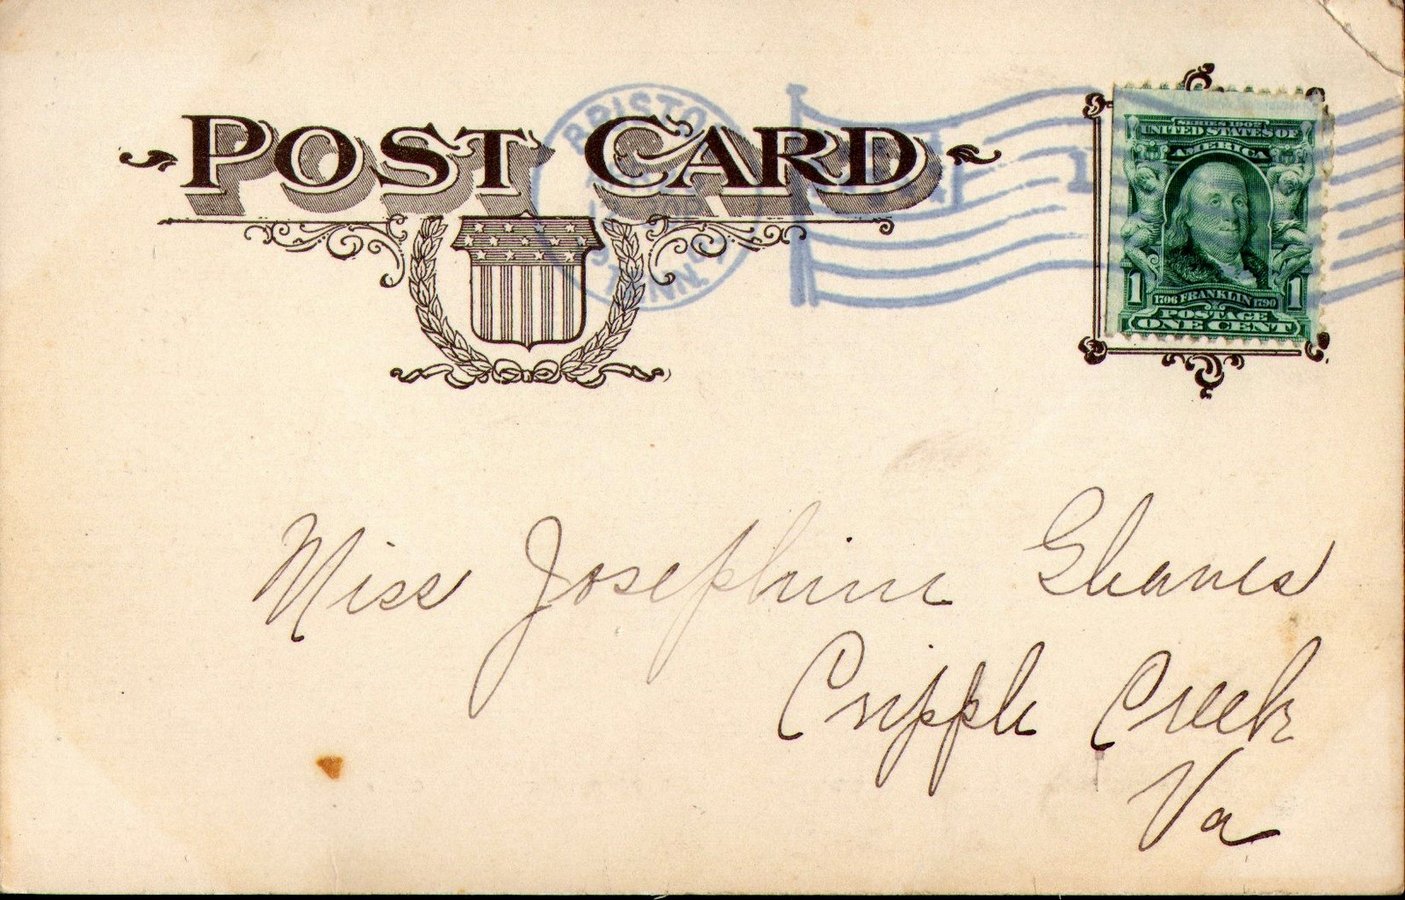 POST CARD
BRISTOL
TENN.
1
SERIES 1902
UNITED STATES OF
AMERICA
1 1706 FRANKLIN 1790 1
POSTAGE
ONE CENT
Miss Josephine Gleaves
Cripple Creek
Va